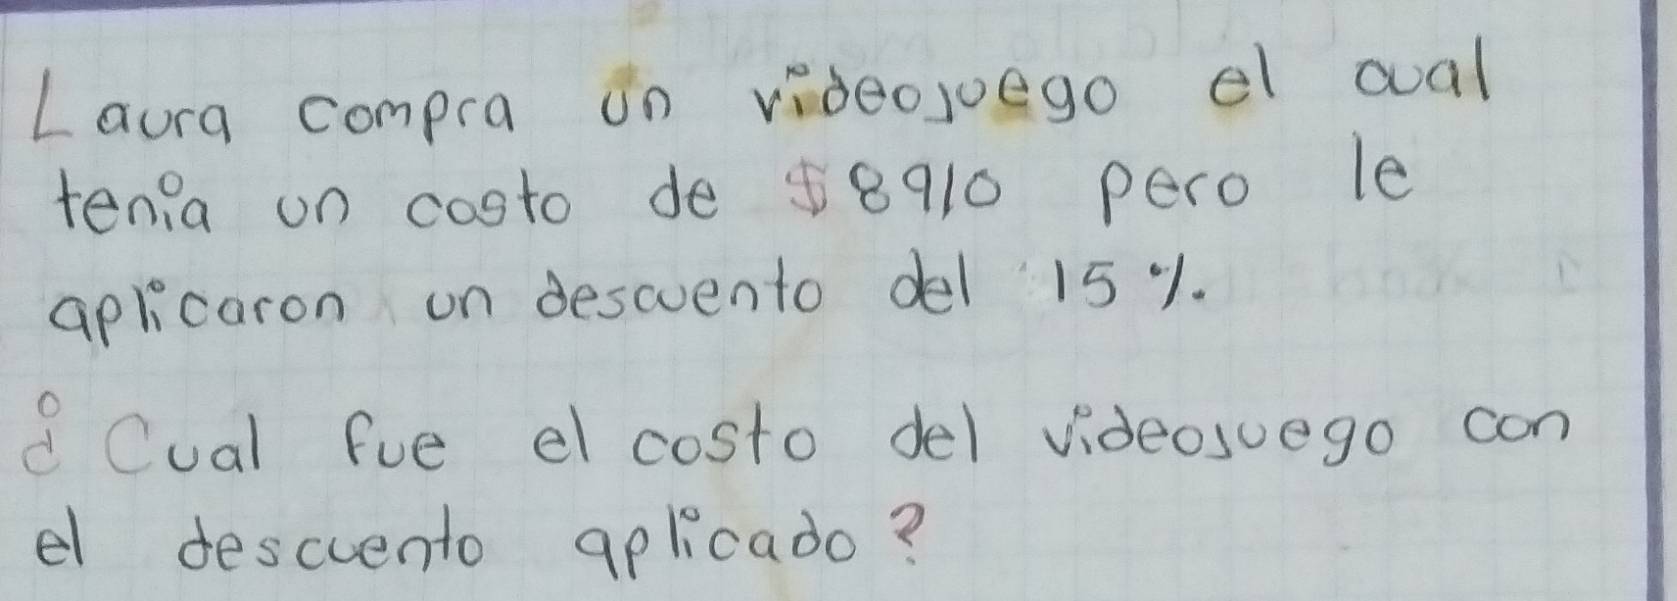 Laura compra un videojuego el cual
tenia un costo de $8910 pero le
aplicaron un descuento del 15%.
¿Cual fue el costo del videojuego con
el descuento aplicado?